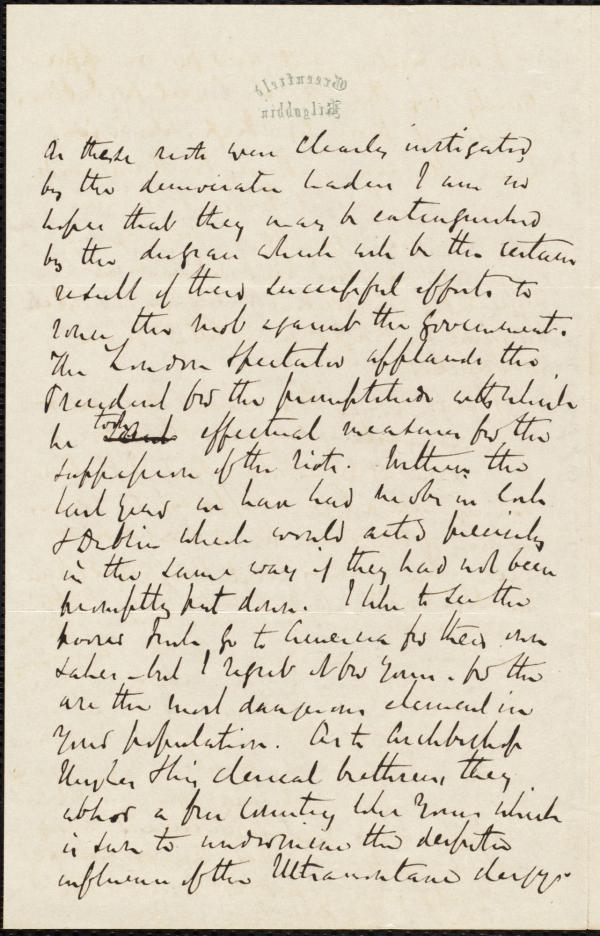 Greenfield
Kilgobbin
As these riots were clearly instigated
by the democratic leaders I am in
hopes that they may be extinguished
by the disgrace which will be the certain
result of their successful efforts to
rouse the mob against the Government.
The London Spectator applauds the
President for the promptitude with which
he took effectual measures for the
suppression of the riots. Within the
last year we have had mobs in Cork
& Dublin which would acted precisely
in the same way if they had not been
promptly put down. I like to see the
poorer Irish go to America for their own
sakes - but I regret it for yours - for the
are the most dangerous element in
your population. As to Archbishop
Hughes & his clerical brethren, they
abhor a free Country like yours which
is sure to undermine the despotic
influence of the Ultramontane clergy -